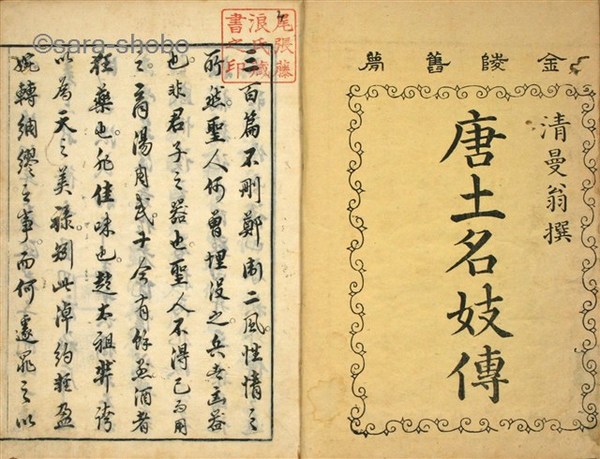 金陵舊夣
清曼翁撰
唐土名妓傳
尾張藤
浪氏藏
書之印
三百篇不刪鄭衛二風性情之
所然聖人何曾埋沒之兵者凶器
也非君子之器也聖人不得已而用
之商湯周武于今有餘烈酒者
狂藥也非佳味也趙太祖
以為天之美祿矧此淖約輕盈
婉轉綢繆之事而何遽罪之以
©sara-shobo